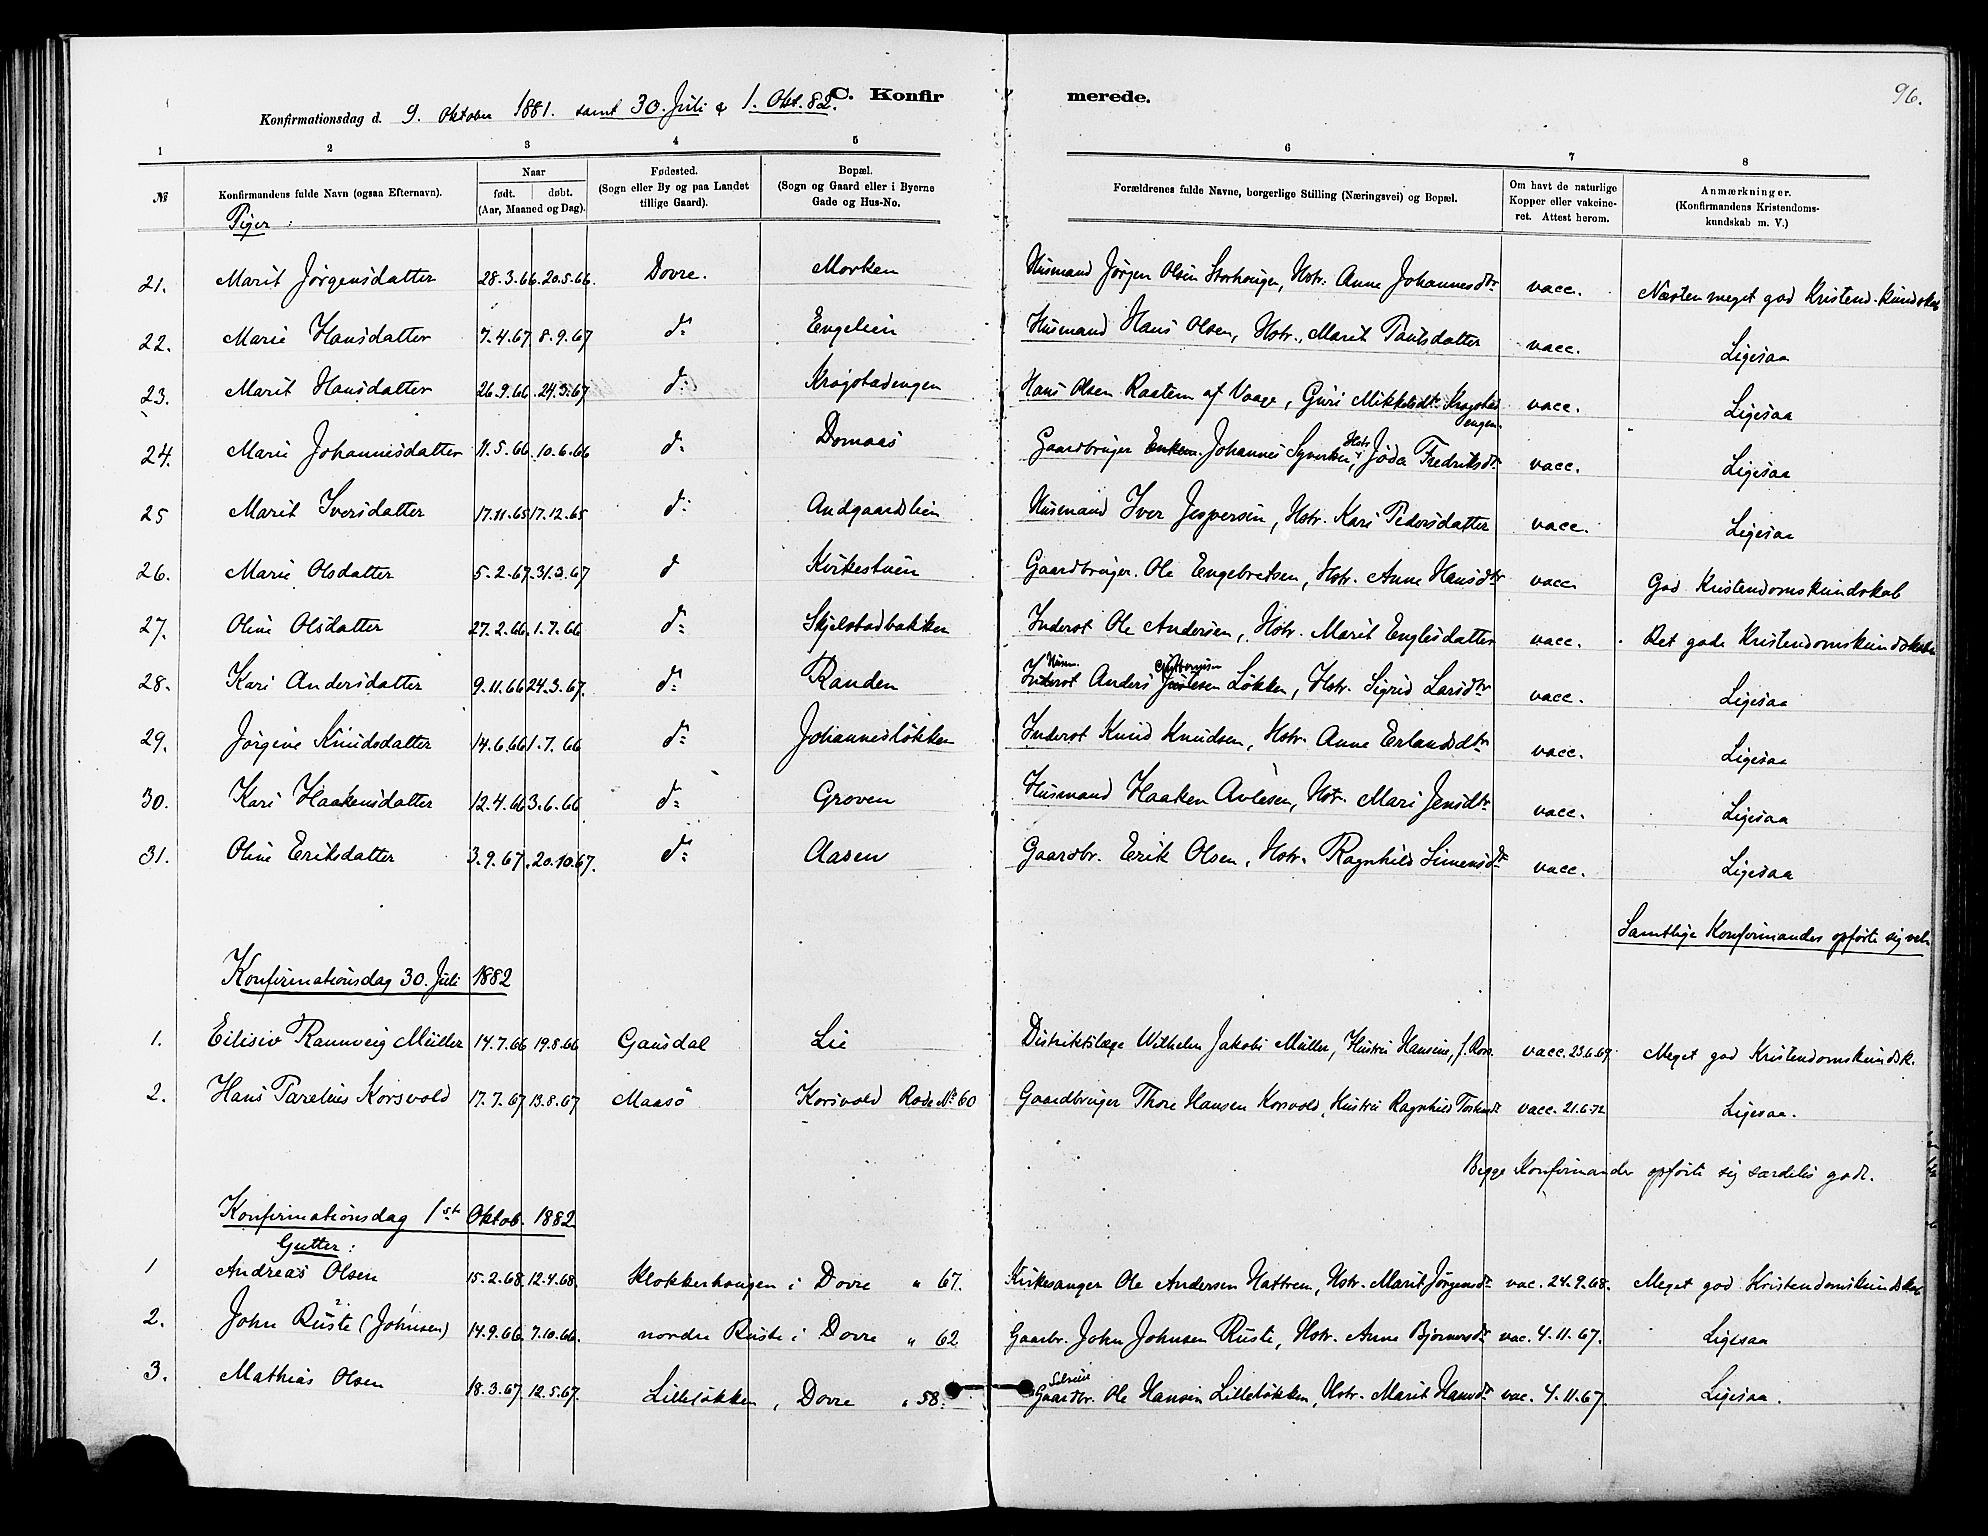 96.
C. Konfirmerede.
Konfirmationsdag d. 9. Oktober 1881. samt 30. Juli & 1. Okt. 82.
1 2 3 4 5 6 7 8
№ Konfirmandens fulde Navn (ogsaa Efternavn). Naar født. døbt. (Aar, Maaned og Dag). Fødested. (Sogn eller By og paa Landet tillige Gaard). Bopæl. (Sogn og Gaard eller i Byerne Gade og Hus-No. Forældrenes fulde Navne, borgerlige Stilling (Næringsvei) og Bopæl. Om havt de naturlige Kopper eller vakcineret. Attest herom. Anmærkninger. (Konfirmandens Kristendomskundskab m. V.)
Piger:
21. Marit Jørgensdatter 28.3.66. 20.5.66. Dovre. Morken Husmand Jørgen Olsen Storhougen, Hstr. Anne Johannesdtr vacc. Næsten meget god Kristend.kundskab
22. Marie Hansdatter 7.4.67. 8.9.67 do Engelien Husmand Hans Olsen, Hstr. Marit Paulsdatter vacc. Ligesaa
23. Marit Hansdatter 26.9.66. 24.3.67 do Krogstadengen Hans Olsen Raatem af Vaage, Guri Mikkelsdtr Krogstadengen vacc. Ligesaa
24. Marie Johannesdatter 11.5.66. 10.6.66 do Domaas Gaardbruger Johannes Syvertsen, Hstr. Fredriksdtr vacc. Ligesaa
25 Marit Iversdatter 17.11.65 17.12.65 do Andgaardslien Husmand Iver Jespersen, Hstr. Kari Pedersdatter vacc. Ligesaa
26. Marie Olsdatter 5.2.67. 31.3.67 do Kirkestuen Gaardbruger Ole Engebretsen, Hstr. Anne Hansdtr vacc. God Kristendomskundskab
27. Oline Olsdatter 27.2.66. 1.7.66 do Skjelstadbakken Inderst Ole Andersen, Hstr. Marit Englesdatter vacc. Ret gode Kristendomskundskaber
28. Kari Andersdatter 9.11.66 24.3.67. do Randen Husm. Anders Guttormsen Løkken, Hstr. Sigrid Larsdtr vacc. Ligesaa
29. Jørgine Knudsdatter 14.6.66 1.7.66 do Johannesløkken Inderst Knud Knudsen, Hstr. Anne Erlandsdtr vacc. Ligesaa
30. Kari Haakensdatter 12.4.66 3.6.66 do Groven Husmand Haaken Avlesen, Hstr. Mari Jensdtr vacc. Ligesaa
31. Oline Eriksdatter 3.9.67. 20.10.67. do Aasen Gaardbr. Erik Olsen, Hstr. Ragnhild Simensdtr vacc. Ligesaa
Samtlige Konfirmander opførte sig vel.
Konfirmationsdag 30. Juli 1882
1. Eilisiv Rannveig Müller 14.7.66 19.8.66 Gausdal Lie Distriktslæge Wilhelm Jakobi Müller, Hustru Hansine, f. vacc. 23.6.69. Meget god Kristendomskundsk.
2. Hans Parelius Korsvold 17.7.67 13.8.67 Maasö Korsvold Rode No 60 Gaardbruger Thore Hansen Korsvold, Hustru Ragnhild vacc. 21.6.72 Ligesaa.
Begge Konfirmander opførte sig særdeles godt.
Konfirmationsdag 1ste Oktob. 1882
Gutter:
1 Andreas Olsen 15.2.68. 12.4.68. Klokkerhaugen i Dovre " 67. Kirkesanger Ole Andersen Hattrem, Hstr. Marit Jørgensdtr vac. 24.9.68. Meget god Kristendomskundskab
2. John Ruste (Johnsen) 14.9.66. 7.10.66. nordre Ruste i Dovre " 62 Gaarbr. John Johnsen Ruste, Hstr. Anne Bjørnersdtr vac. 4.11.67. Ligesaa
3. Mathias Olsen 18.3.67. 12.5.67. Lilleløkken, Dovre " 58. Selveier Gaardbr. Ole Hansen Lilleløkken, Hstr. Marit Hansdtr vac. 4.11.67. Ligesaa.